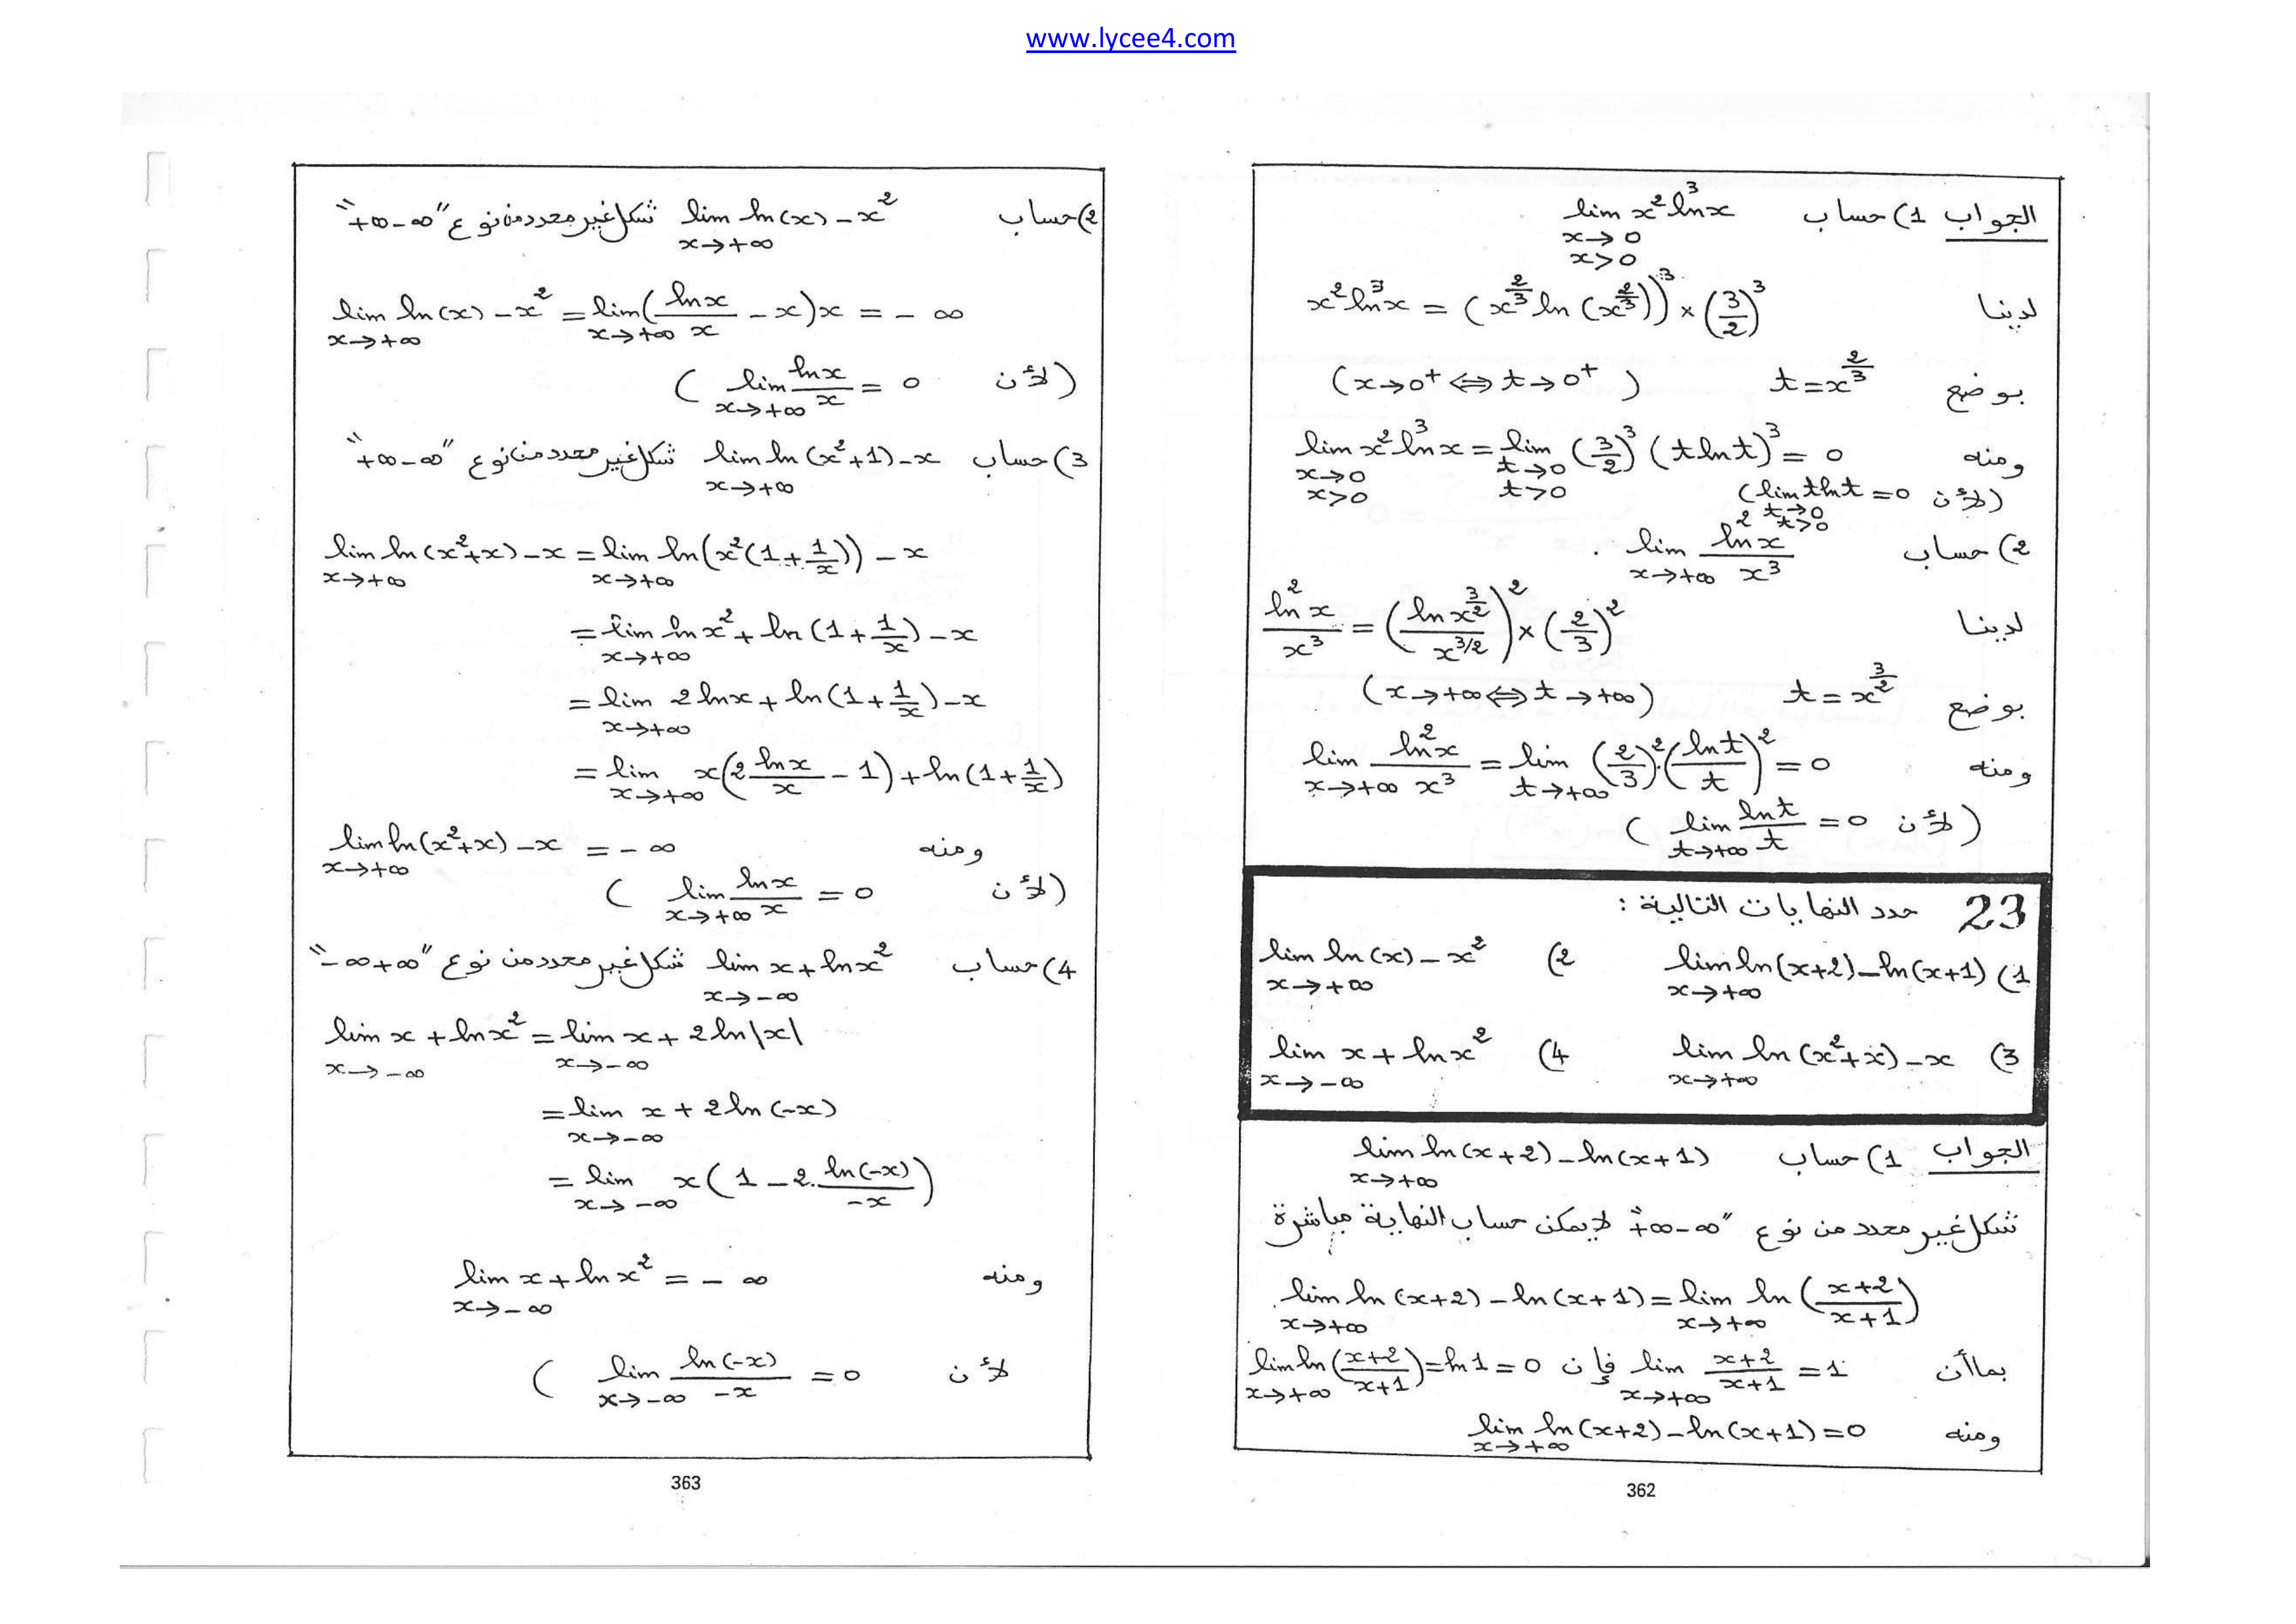 www.lycee4.com
الجواب 1) حساب lim x² ln³x
x→0
x>0
لدينا x² ln³x = (x^{2/3} ln (x^{2/3}))³ × (3/2)³
بوضع t = x^{2/3} (x→0⁺ ⇔ t→0⁺)
ومنه lim_{x→0, x>0} x² ln³x = lim_{t→0, t>0} (3/2)³ (t ln t)³ = 0
(لأن lim_{t→0, t>0} t ln t = 0)
2) حساب lim_{x→+∞} ln²x / x³ .
لدينا ln²x / x³ = (ln x^{3/2} / x^{3/2})² × (2/3)²
بوضع t = x^{3/2} (x→+∞ ⇔ t→+∞)
ومنه lim_{x→+∞} ln²x / x³ = lim_{t→+∞} (2/3)² . (ln t / t)² = 0
(لأن lim_{t→+∞} ln t / t = 0)
23 حدد النهايات التالية :
1) lim_{x→+∞} ln(x+2) - ln(x+1) 2) lim_{x→+∞} ln(x) - x²
3) lim_{x→+∞} ln(x²+x) - x 4) lim_{x→-∞} x + ln x²
الجواب 1) حساب lim_{x→+∞} ln(x+2) - ln(x+1)
شكل غير محدد من نوع "+∞-∞" لا يمكن حساب النهاية مباشرة
lim_{x→+∞} ln(x+2) - ln(x+1) = lim_{x→+∞} ln((x+2)/(x+1))
بما أن lim_{x→+∞} (x+2)/(x+1) = 1 فإن lim_{x→+∞} ln((x+2)/(x+1)) = ln 1 = 0
ومنه lim_{x→+∞} ln(x+2) - ln(x+1) = 0
362
2) حساب lim_{x→+∞} ln(x) - x² شكل غير محدد من نوع "+∞-∞"
lim_{x→+∞} ln(x) - x² = lim_{x→+∞} (ln x / x - x) x = -∞
(لأن lim_{x→+∞} ln x / x = 0)
3) حساب lim_{x→+∞} ln(x²+1) - x شكل غير محدد من نوع "+∞-∞"
lim_{x→+∞} ln(x²+x) - x = lim_{x→+∞} ln(x²(1+1/x)) - x
= lim_{x→+∞} ln x² + ln(1+1/x) - x
= lim_{x→+∞} 2 ln x + ln(1+1/x) - x
= lim_{x→+∞} x(2 ln x / x - 1) + ln(1+1/x)
ومنه lim_{x→+∞} ln(x²+x) - x = -∞
(لأن lim_{x→+∞} ln x / x = 0)
4) حساب lim_{x→-∞} x + ln x² شكل غير محدد من نوع "-∞+∞"
lim_{x→-∞} x + ln x² = lim_{x→-∞} x + 2 ln|x|
= lim_{x→-∞} x + 2 ln(-x)
= lim_{x→-∞} x(1 - 2. ln(-x) / -x)
ومنه lim_{x→-∞} x + ln x² = -∞
لأن lim_{x→-∞} ln(-x) / -x = 0 )
363